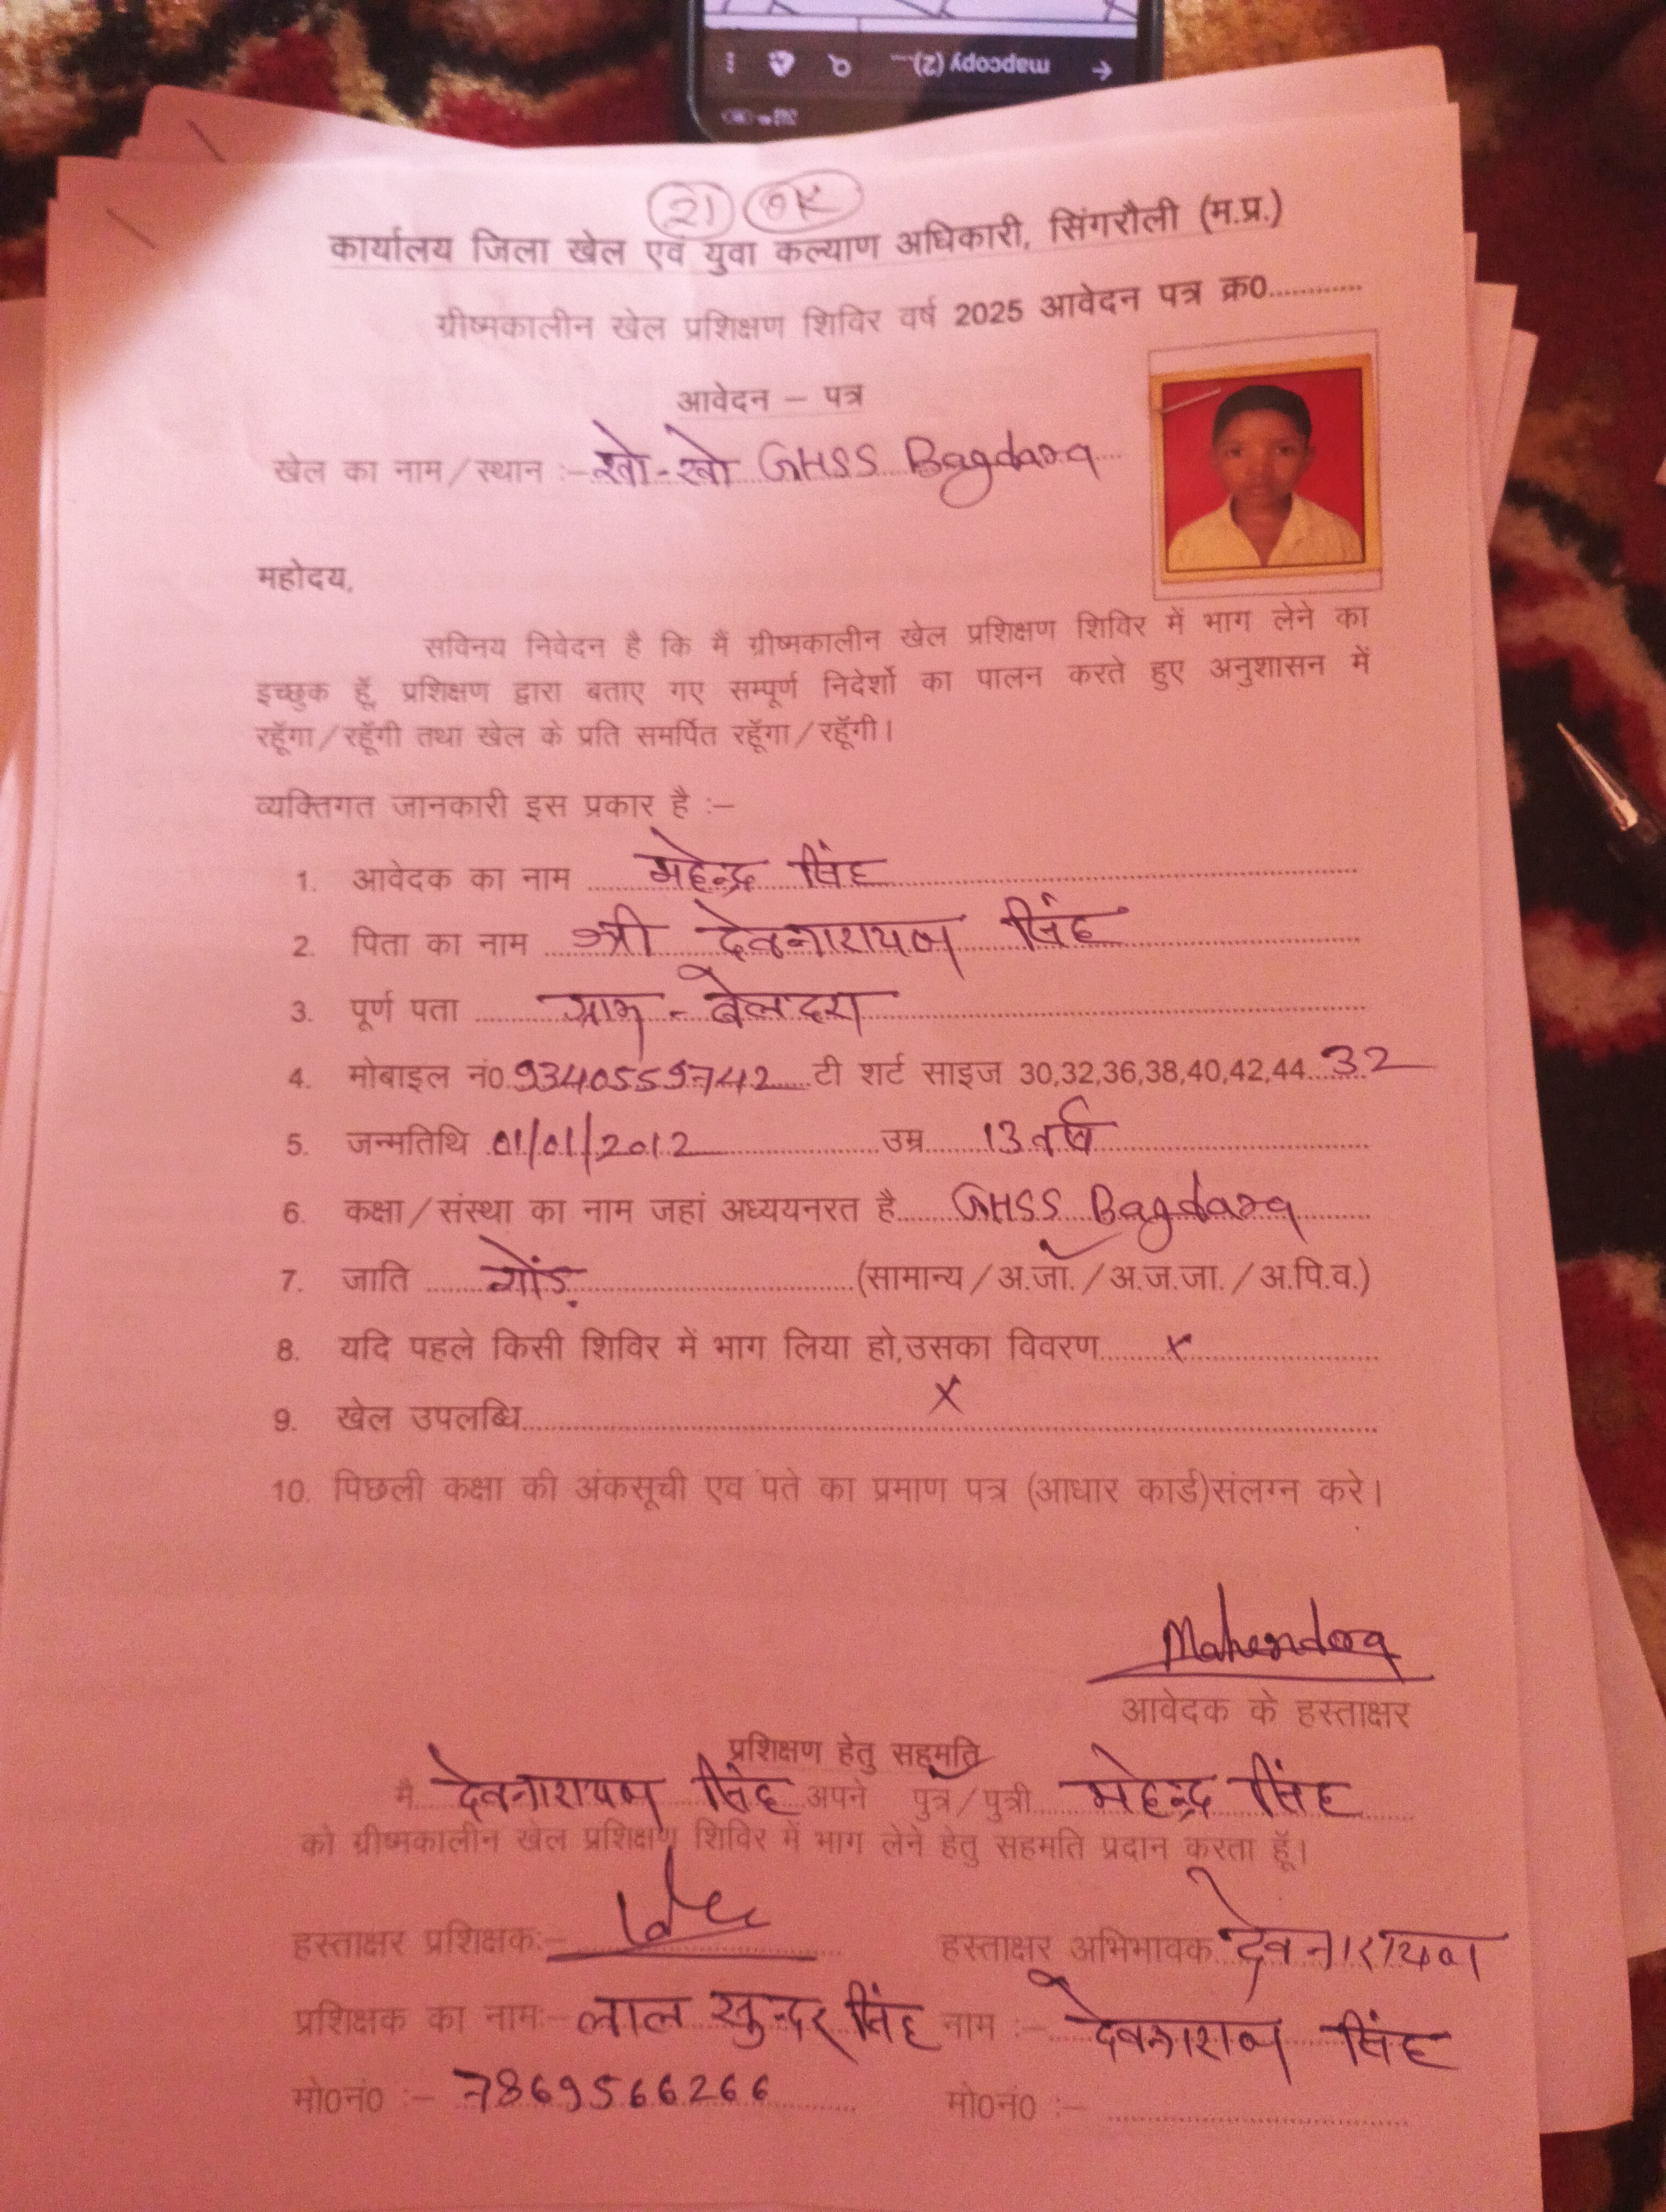 mapcopy (2)...
21 OK
कार्यालय जिला खेल एवं युवा कल्याण अधिकारी, सिंगरौली (म.प्र.)
ग्रीष्मकालीन खेल प्रशिक्षण शिविर वर्ष 2025 आवेदन पत्र क्र0............
आवेदन – पत्र
खेल का नाम/स्थान :- खो-खो GHSS Bagdara
महोदय,
सविनय निवेदन है कि मैं ग्रीष्मकालीन खेल प्रशिक्षण शिविर में भाग लेने का
इच्छुक हूँ, प्रशिक्षण द्वारा बताए गए सम्पूर्ण निदेर्शो का पालन करते हुए अनुशासन में
रहूँगा/रहूँगी तथा खेल के प्रति समर्पित रहूँगा/रहूँगी।
व्यक्तिगत जानकारी इस प्रकार है :–
1. आवेदक का नाम महेन्द्र सिंह
2. पिता का नाम श्री देवनारायण सिंह
3. पूर्ण पता ग्राम - बेलदरा
4. मोबाइल नं0 9340559742 टी शर्ट साइज 30,32,36,38,40,42,44 32
5. जन्मतिथि 01/01/2012 उम्र 13 वर्ष
6. कक्षा/संस्था का नाम जहां अध्ययनरत है GHSS Bagdara
7. जाति गोंड़ (सामान्य/अ.जा./अ.ज.जा./अ.पि.व.)
8. यदि पहले किसी शिविर में भाग लिया हो,उसका विवरण x
9. खेल उपलब्धि x
10. पिछली कक्षा की अंकसूची एव पते का प्रमाण पत्र (आधार कार्ड)संलग्न करे।
Mahendra
आवेदक के हस्ताक्षर
प्रशिक्षण हेतु सहमति
मै देवनारायण सिंह अपने पुत्र/पुत्री महेन्द्र सिंह
को ग्रीष्मकालीन खेल प्रशिक्षण शिविर में भाग लेने हेतु सहमति प्रदान करता हूँ।
हस्ताक्षर प्रशिक्षक:– हस्ताक्षर अभिभावक देवनारायण
प्रशिक्षक का नाम:– लाल सुन्दर सिंह नाम :– देवनारायण सिंह
मो0नं0 :– 7869566266 मो0नं0 :–